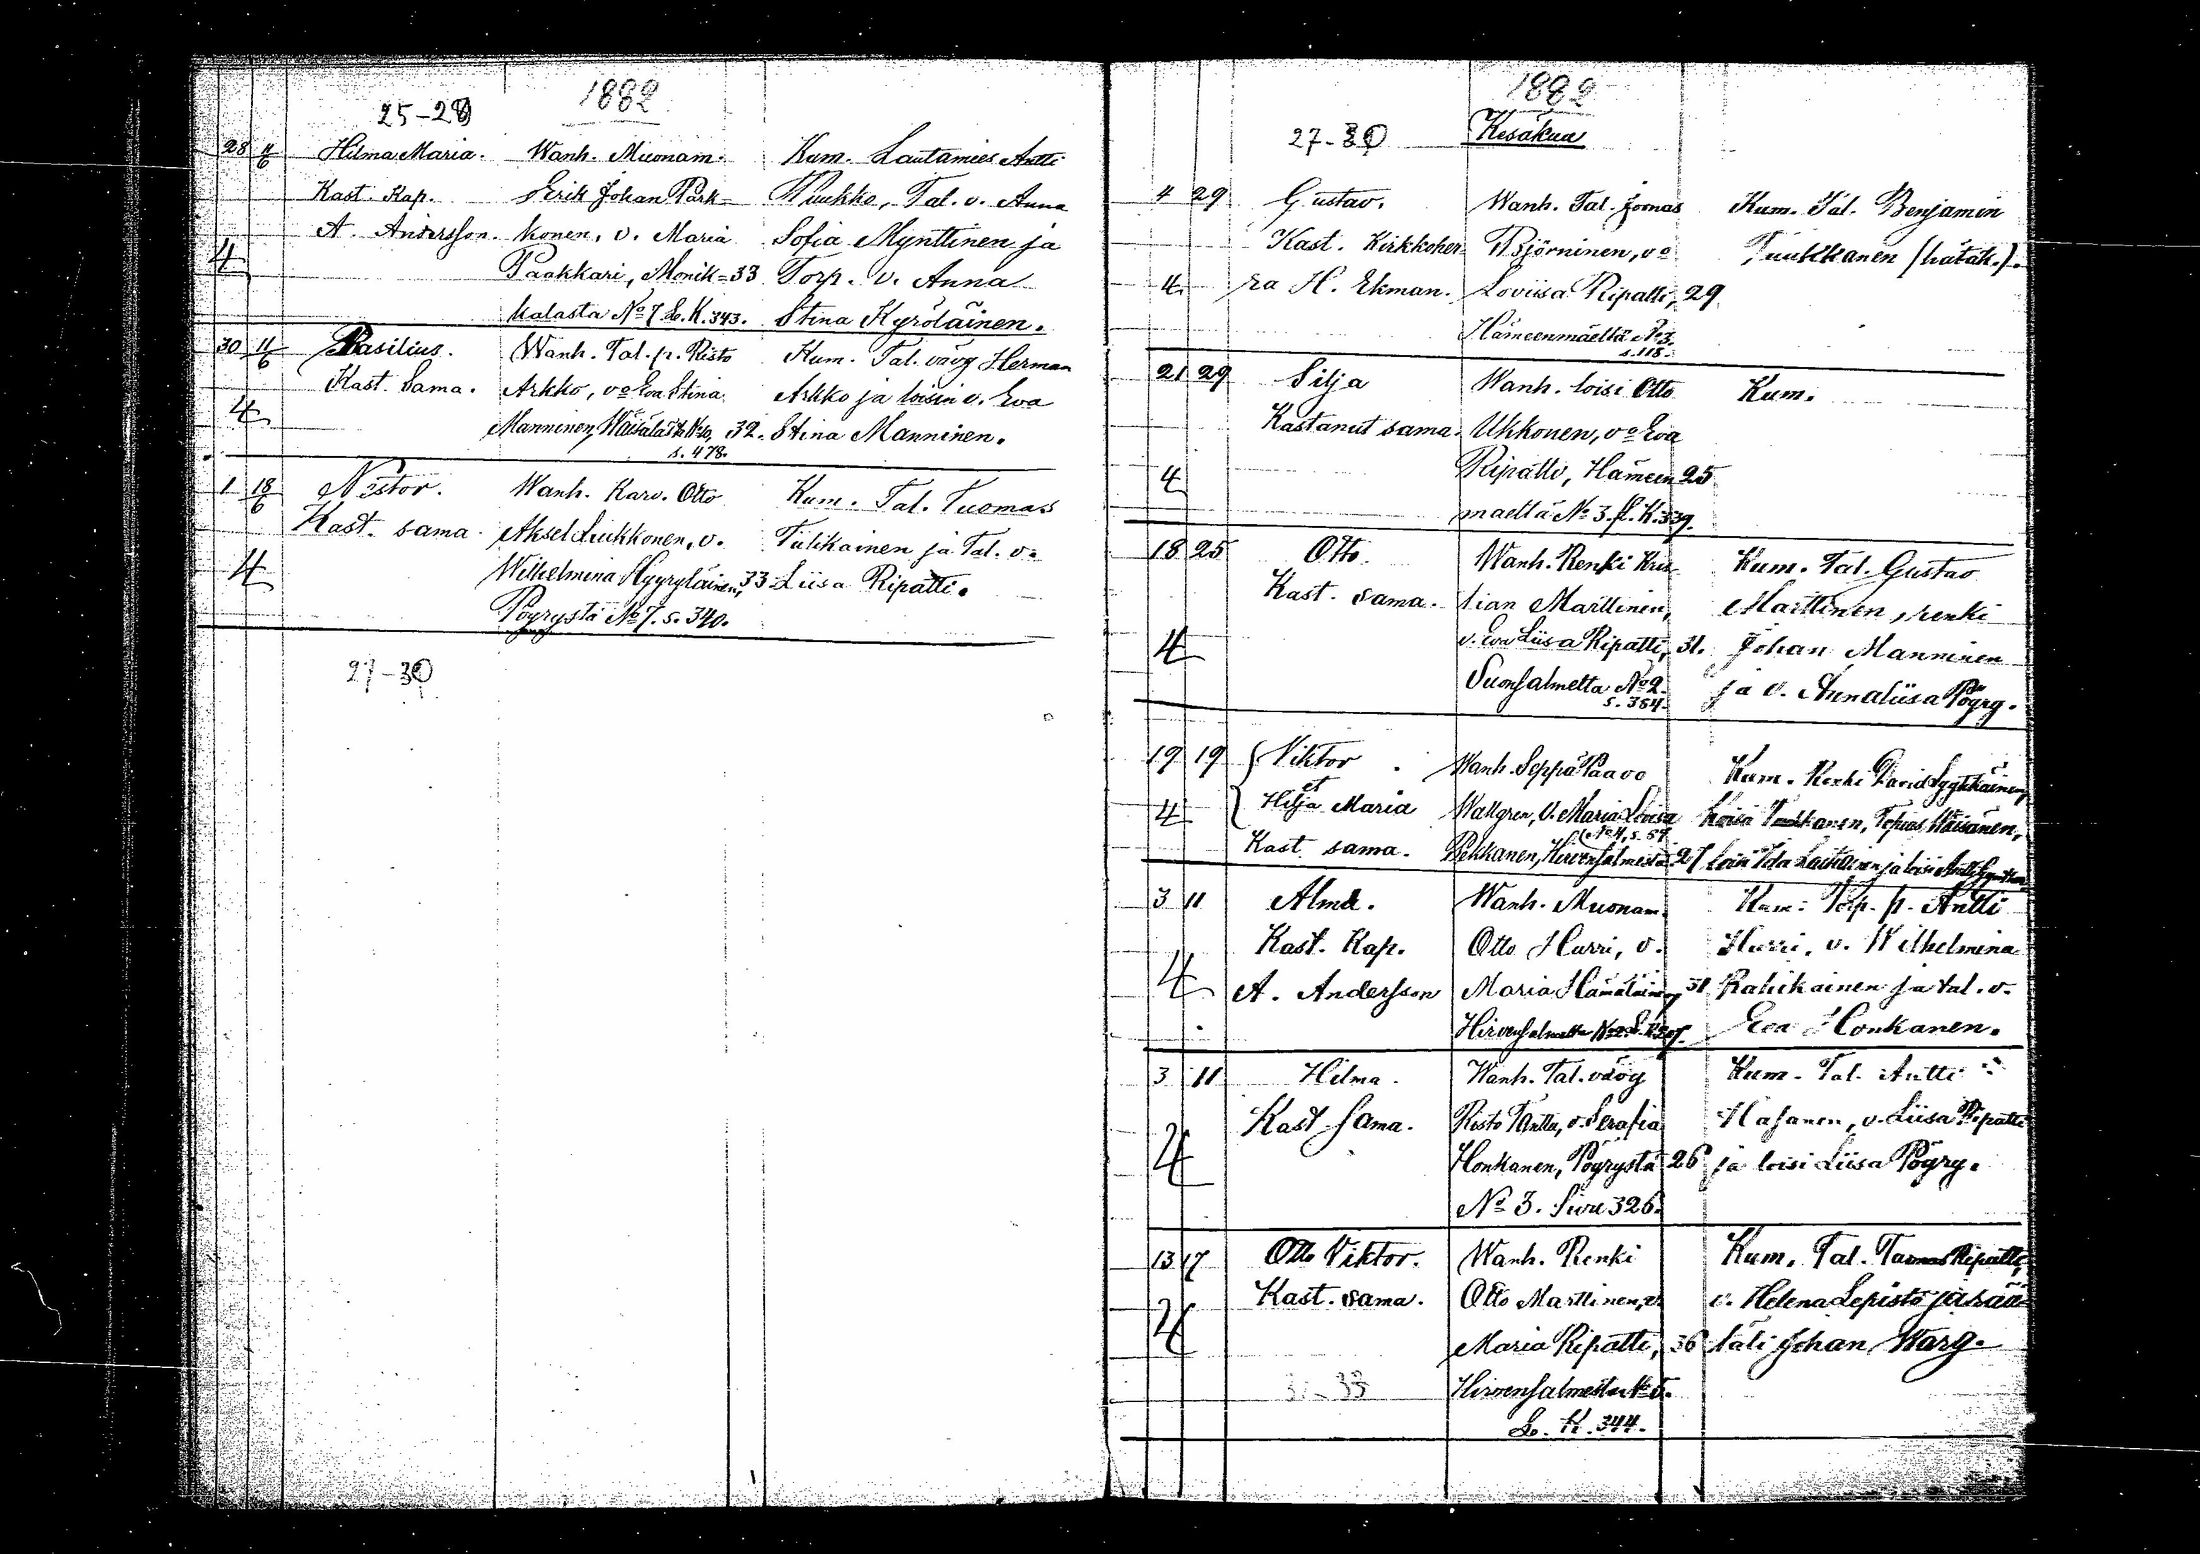 25-28
1882
28 4/6 Hilma Maria. Wanh. Muonam. Kum. Lautamies Antti
Kast. Kap. Erik Johan Park= Puukko, Tal. v. Anna
A. Andersson. konen, v. Maria Sofia Mynttinen ja
4 Paakkari, Monik= 33 Torp. v. Anna
kalasta No 7. L. K. 343. Stina Kyröläinen.
30 11/6 Basilius. Wanh. Tal. p. Risto Kum. Tal. vävy Herman
Kast. Sama. Arkko, vo Eva Stina Arkko ja loisin v. Eva
4 Manninen, Väisälästä No 10, 32. Stina Manninen.
s. 478.
1 18/6 Nestor. Wanh. Karv. Otto Kum. Tal. Tuomas
Kast. sama. Aksel Liukkonen, v. Tulikainen ja Tal. v.
4 Wilhelmina Hyyryläinen, 33 Liisa Ripatti.
Pöyrystä No 7. s. 340.
27-30
1882
27-30 Kesäkuu
4 29 Gustav. Wanh. Tal. Joonas Kum. Tal. Benjamin
Kast. Kirkkoher= Björninen, vo Tuukkanen (hätäk.).
4. ra H. Ekman. Loviisa Ripatti, 29
Hämeenmäeltä No 3.
s. 118.
21 29 Silja Wanh. loisi Otto Kum.
Kastanut sama. Ukkonen, vo Eva
4 Ripatti, Hämeen 25
mäeltä No 3. L. K. 339.
18 25 Otto. Wanh. Renki Kris= Kum. Tal. Gustav
Kast. sama. tian Marttinen, Marttinen, renki
4 v. Eva Liisa Ripatti, 31. Johan Manninen
Suonsalmelta No 2. ja v. Annaliisa Pöyry.
s. 384.
19 19 Viktor Wanh. Seppä Paavo Kum. Renki David Lyytikäinen,
et
4 Hilja Maria Wallgren, v. Maria Lovisa
No 4, s. 57
Kast. sama. Pekkanen, Hirvensalmesta 27
3 11 Alma. Wanh. Muonam. Kum. Torp. p. Antti
Kast. Kap. Otto Hurri, v. Hurri, v. Wilhelmina
4 A. Andersson Maria Hämäläinen, 31 Rahikainen ja tal. v.
Hirvensalmelta No 2. Eva Honkanen.
3 11 Hilma. Wanh. Tal. vävy Kum. Tal. Antti
Kast. Sama. Risto Tanttu, v. Serafia Hasanen, v. Liisa Ripatti
4 Honkanen, Pöyrystä 26 ja loisi Liisa Pöyry.
No 3. Sivu 326.
13 17 Otto Viktor. Wanh. Renki Kum. Tal. Taavi Ripatti,
Kast. sama. Otto Marttinen, v. v. Helena Lepistö ja rää=
4 Maria Ripatti, 36 täli Johan Warg.
33 Hirvensalmesta No 5.
L. K. 344.